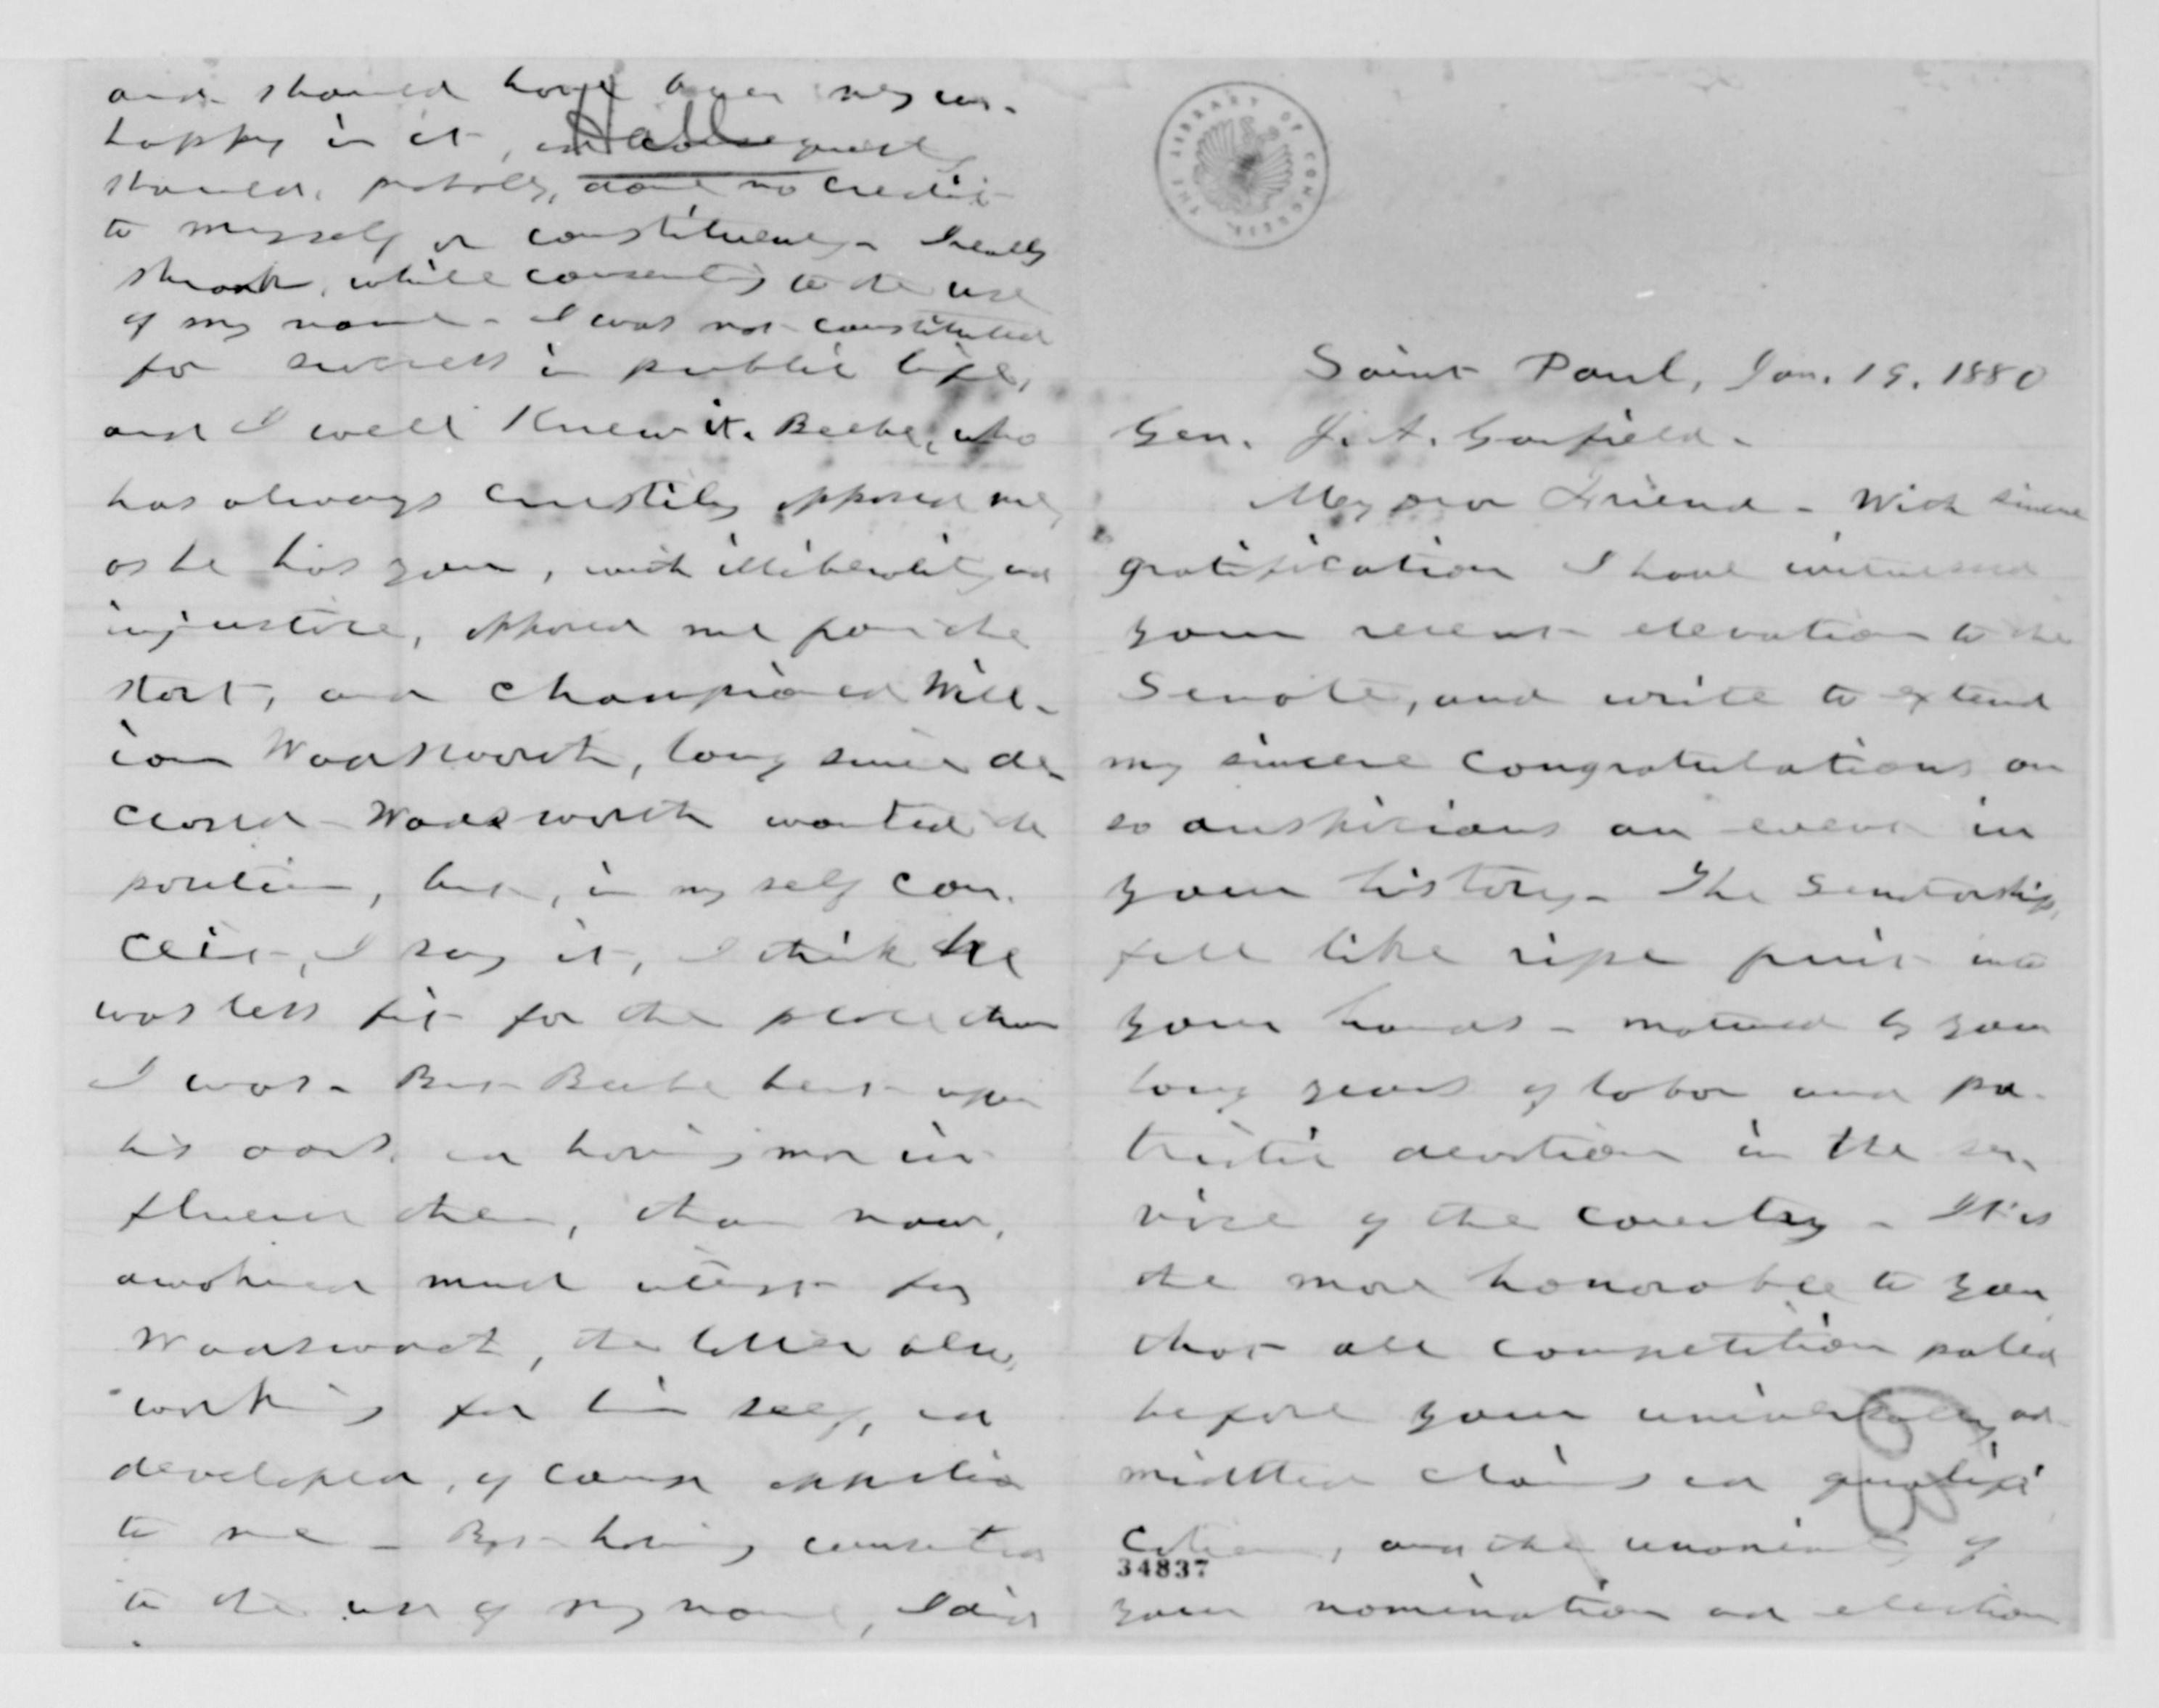 and should have been very un-
happy in it, and consequently
Hall
should, probably, done no credit
to myself or constituency - I really
shrank, while consenting to the use
of my name - I was not constituted
for success in public life,
and I well knew it. Beebe, who
has always opposed me,
as he has you, with illiberality and
injustice, opposed me from the
start, and championed Will-
iam Wadsworth, long since de-
ceased - Wadsworth wanted the
position, but, in my self con-
ceit, I say it, I think he
was less fit for the place than
I was - But Beebe bent upon
his and having more in-
fluence then, than now,
awakened much interest for
Wadsworth, the latter also,
working for himself, and
developed, of course opposition
to me - But having consented
to the use of my name, I did
THE LIBRARY OF CONGRESS
Saint Paul, Jan. 19, 1880
Gen. J. A. Garfield -
My dear Friend - With sincere
gratification I have witnessed
your recent elevation to the
Senate, and write to extend
my sincere congratulations on
so auspicious an event in
your history - The Senatorship,
fell like ripe fruit into
your hands - matured by your
long years of labor and pa-
triotic devotion in the ser-
vice of the country - It is
the more honorable to you
that all competition paled
before your universally ad-
mitted claims and qualifi-
cations, and the unanimity of
34837
your nomination and election